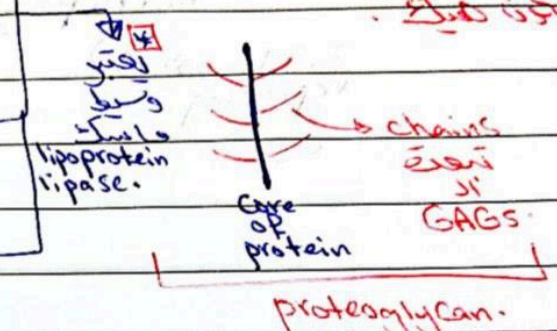 يعتبر
وسيط
ماسك
lipoprotein
lipase.
Core
of
protein
chains
تبعت
ال
GAGs.
proteoglycan.